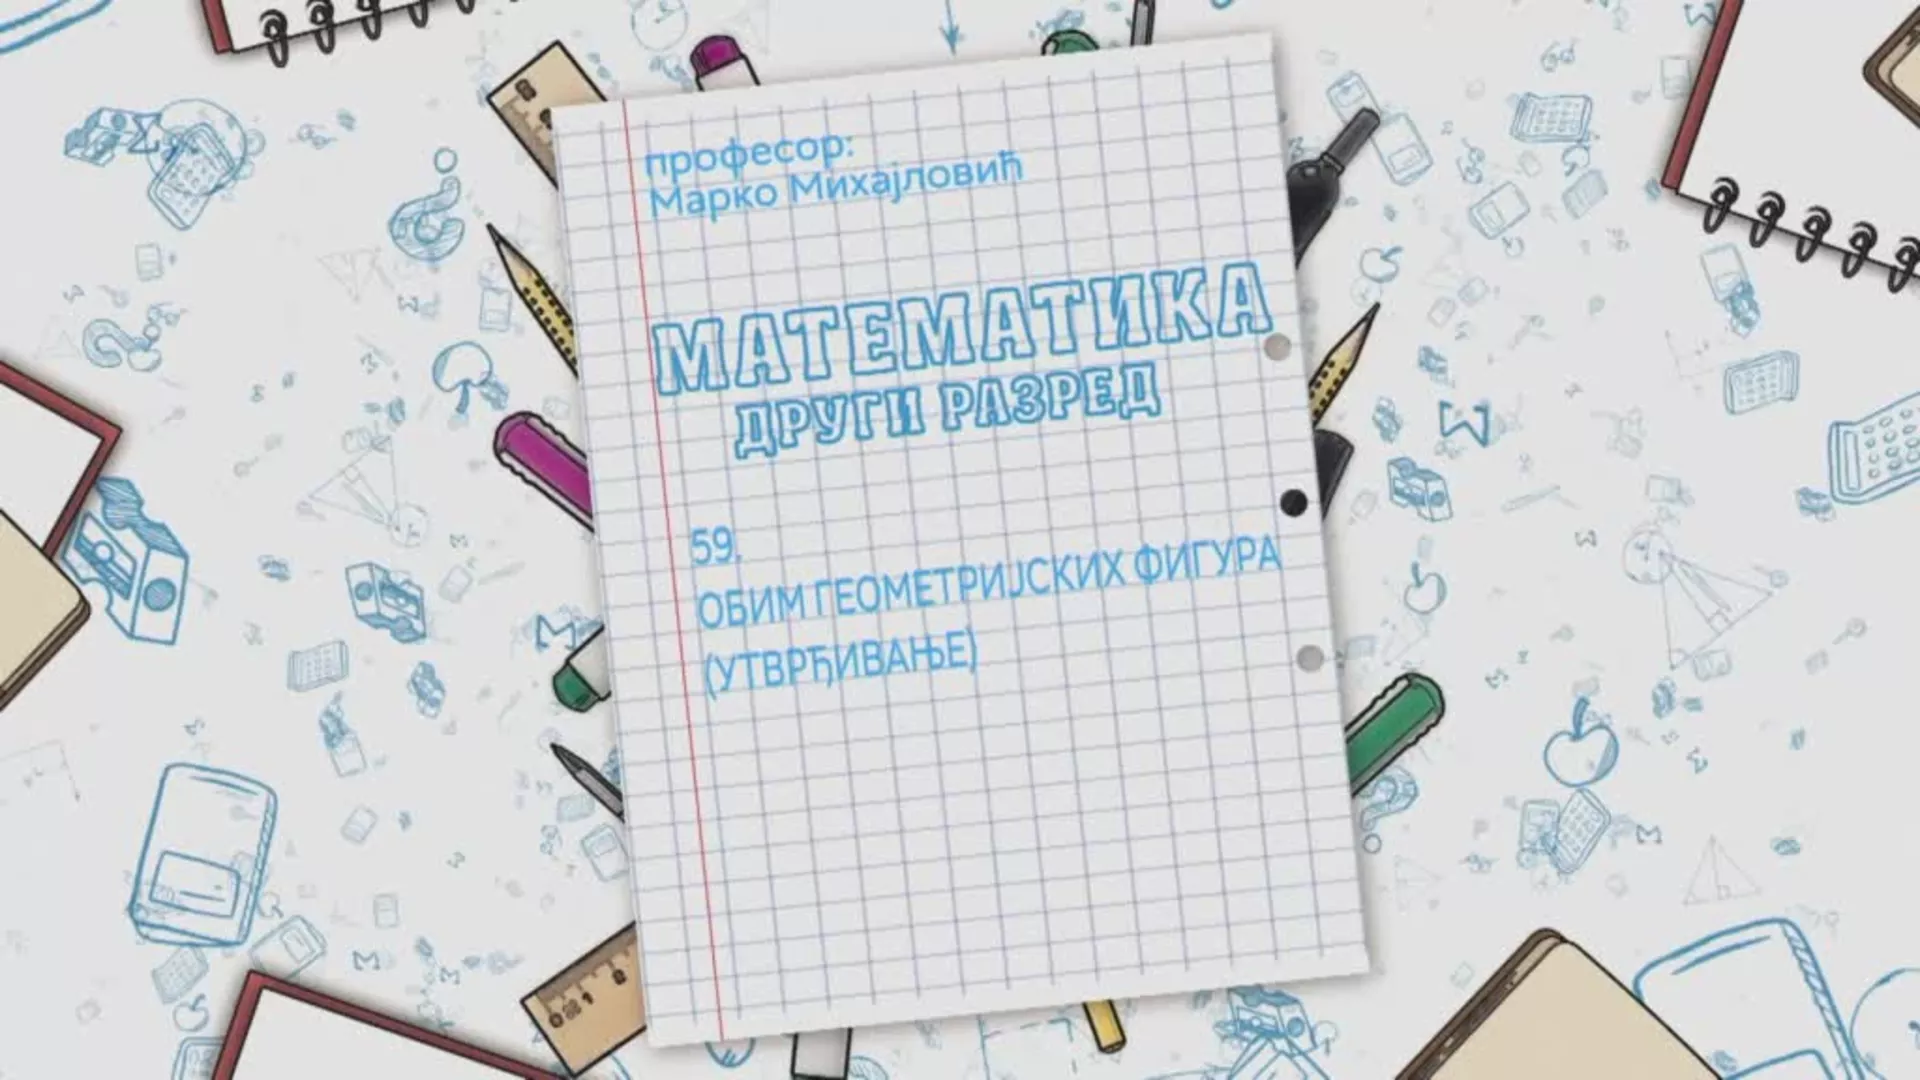 професор:
Марко Михајловић
МАТЕМАТИКА
ДРУГИ РАЗРЕД
59.
ОБИМ ГЕОМЕТРИЈСКИХ ФИГУРА
(УТВРЂИВАЊЕ)